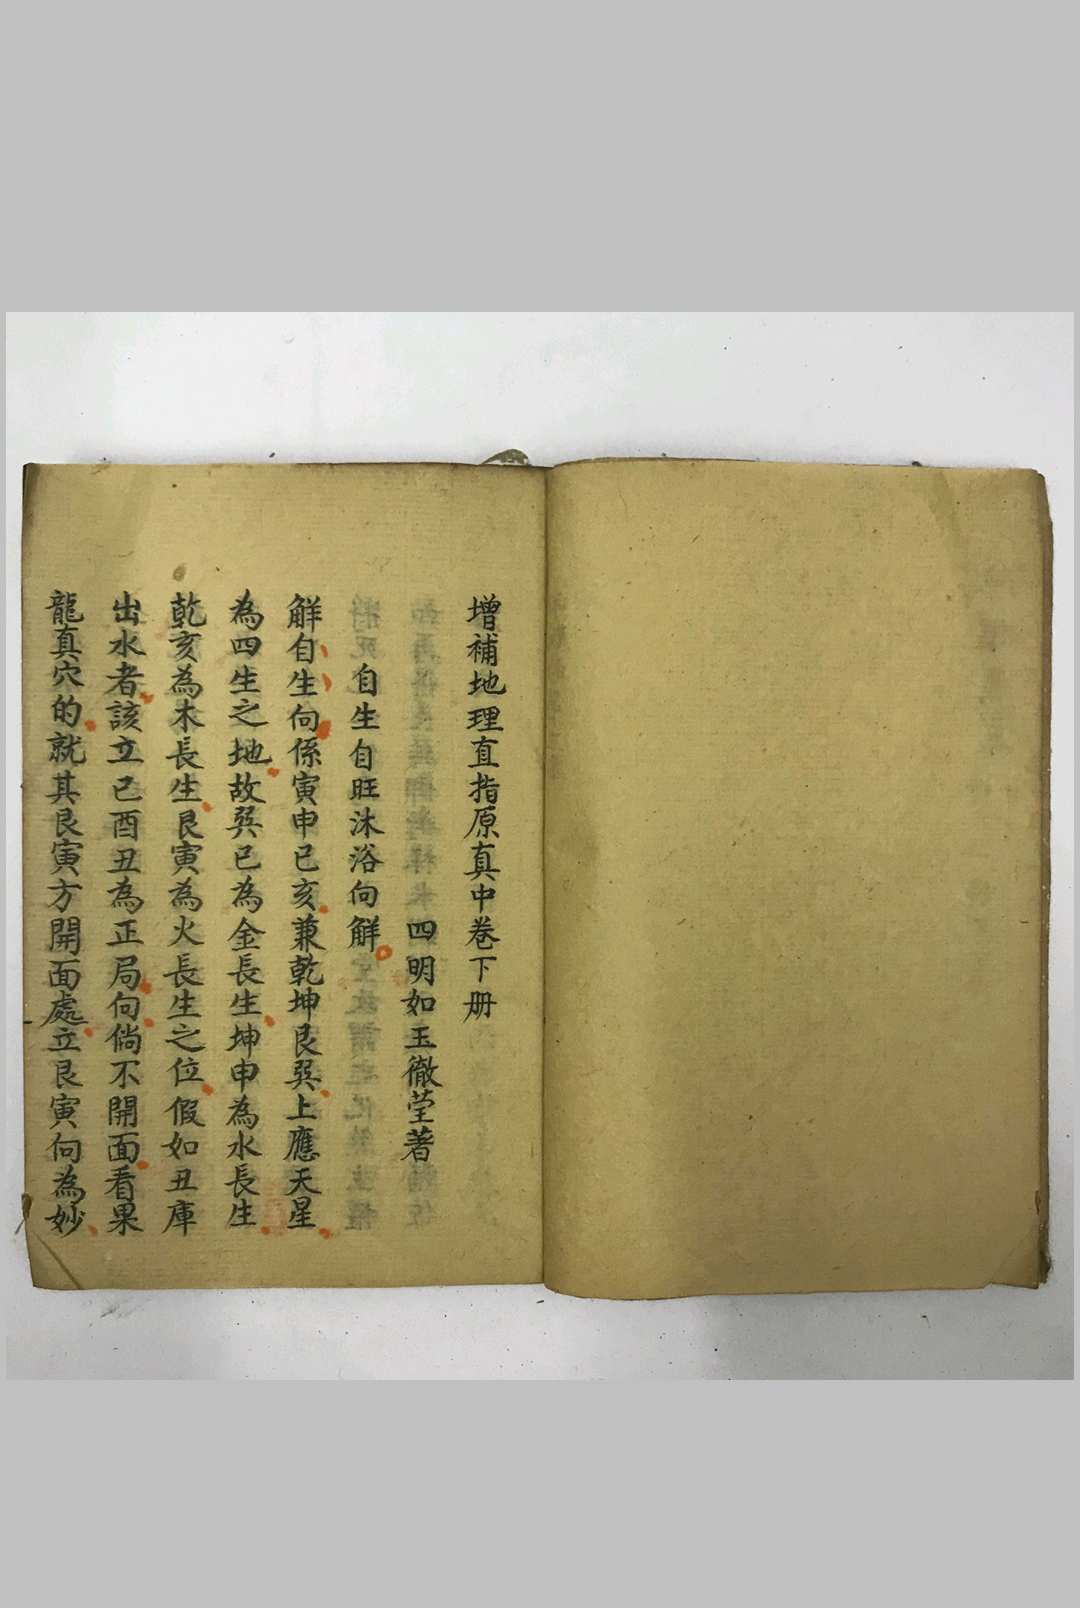 增補地理直指原真中卷下册
四明如玉徹莹著
自生自旺沐浴向觧
觧自生向係寅申巳亥兼乾坤艮巽上應天星
為四生之地故巽巳為金長生坤申為水長生
乾亥為木長生艮寅為火長生之位假如丑庫
出水者該立巳酉丑為正局向倘不開面看果
龍真穴的就其艮寅方開面處立艮寅向為妙